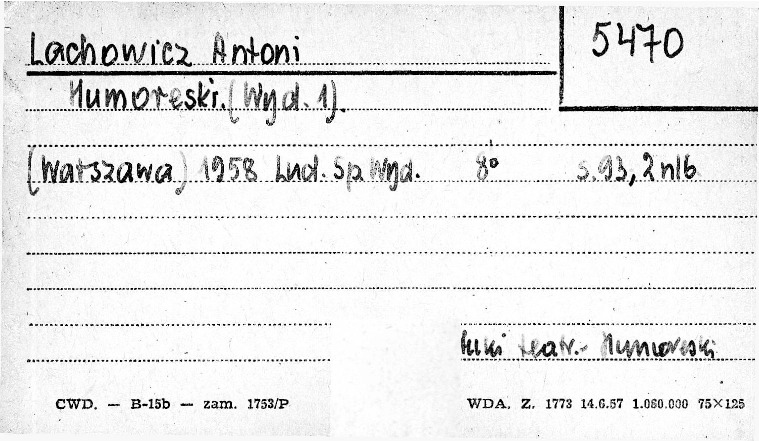 Lachowicz Antoni
5470
Humoreski. (Wyd. 1).
(Warszawa) 1958 Lud. Sp. Wyd. 8° s. 93, 2 nlb.
teatr. - Humoreski
CWD. — B-15b — zam. 1753/P
WDA. Z. 1773 14.6.57 1.080.000 75×125